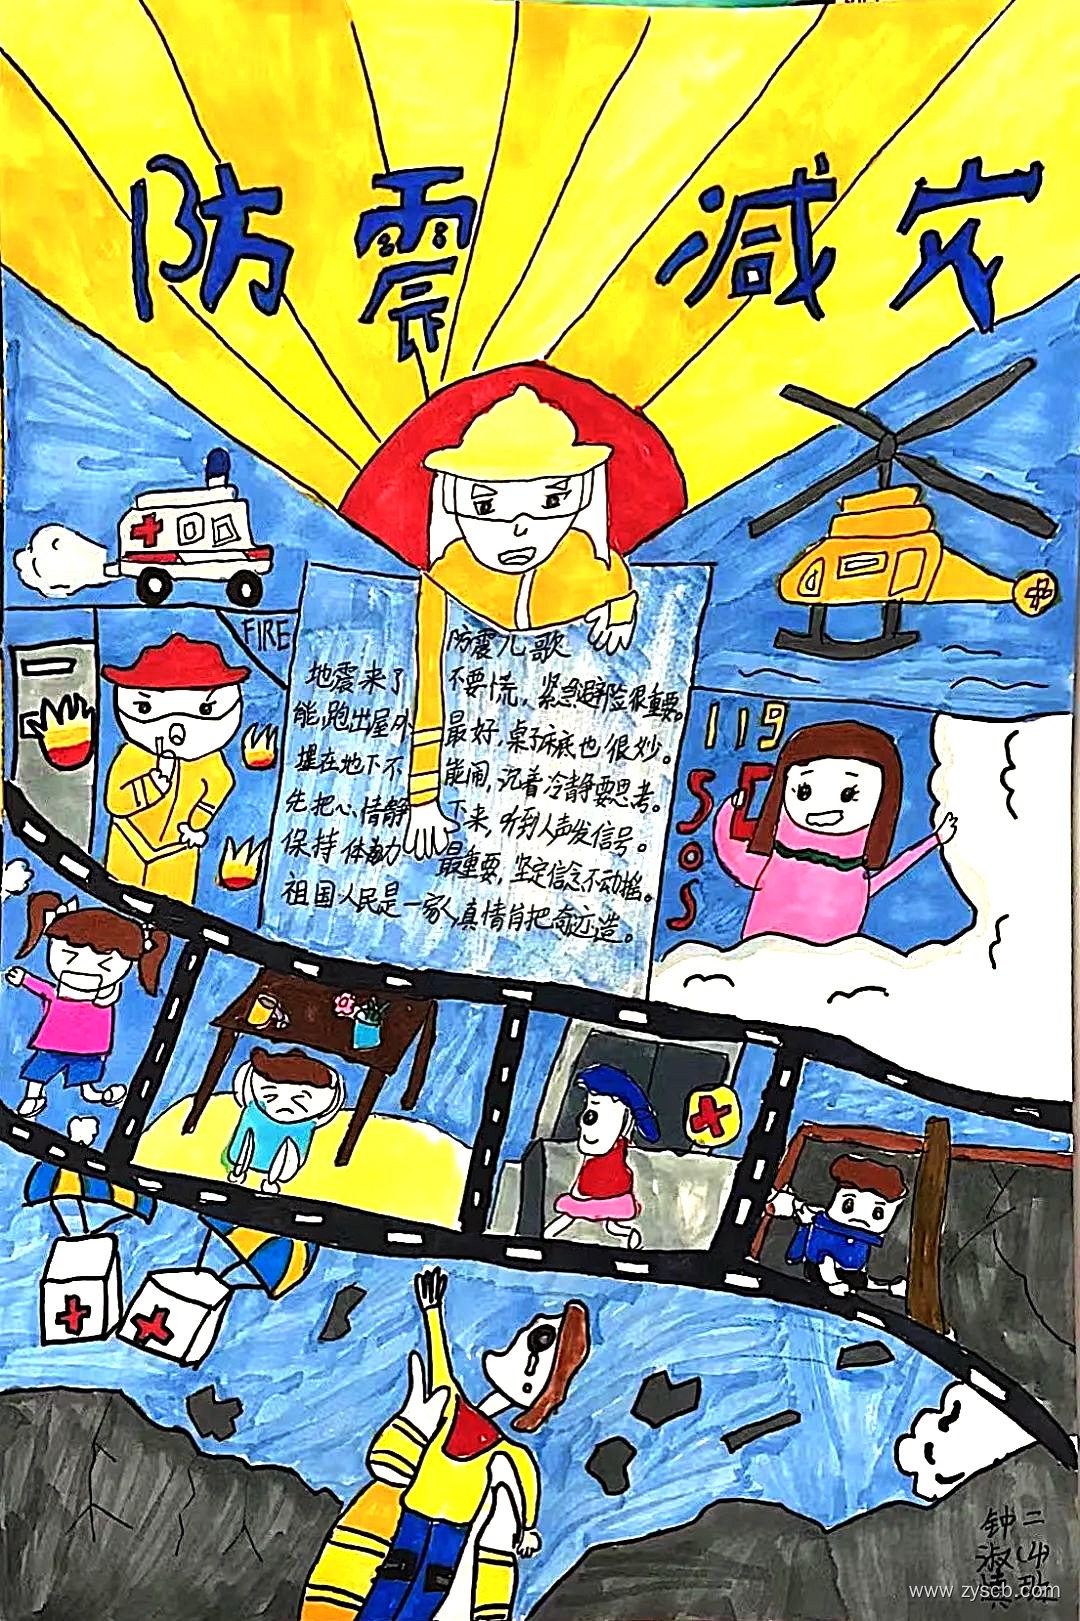 防震减灾
FIRE
防震儿歌
地震来了不要慌，紧急避险很重要。
能跑出屋外最好，桌子床底也很妙。
埋在地下不能闹，沉着冷静要思考。
先把心情静下来，听到人声发信号。
保持体力最重要，坚定信念不动摇。
祖国人民是一家人真情肯把奇迹造。
119
SOS
二(4)班
钟淑
www.zyscb.com